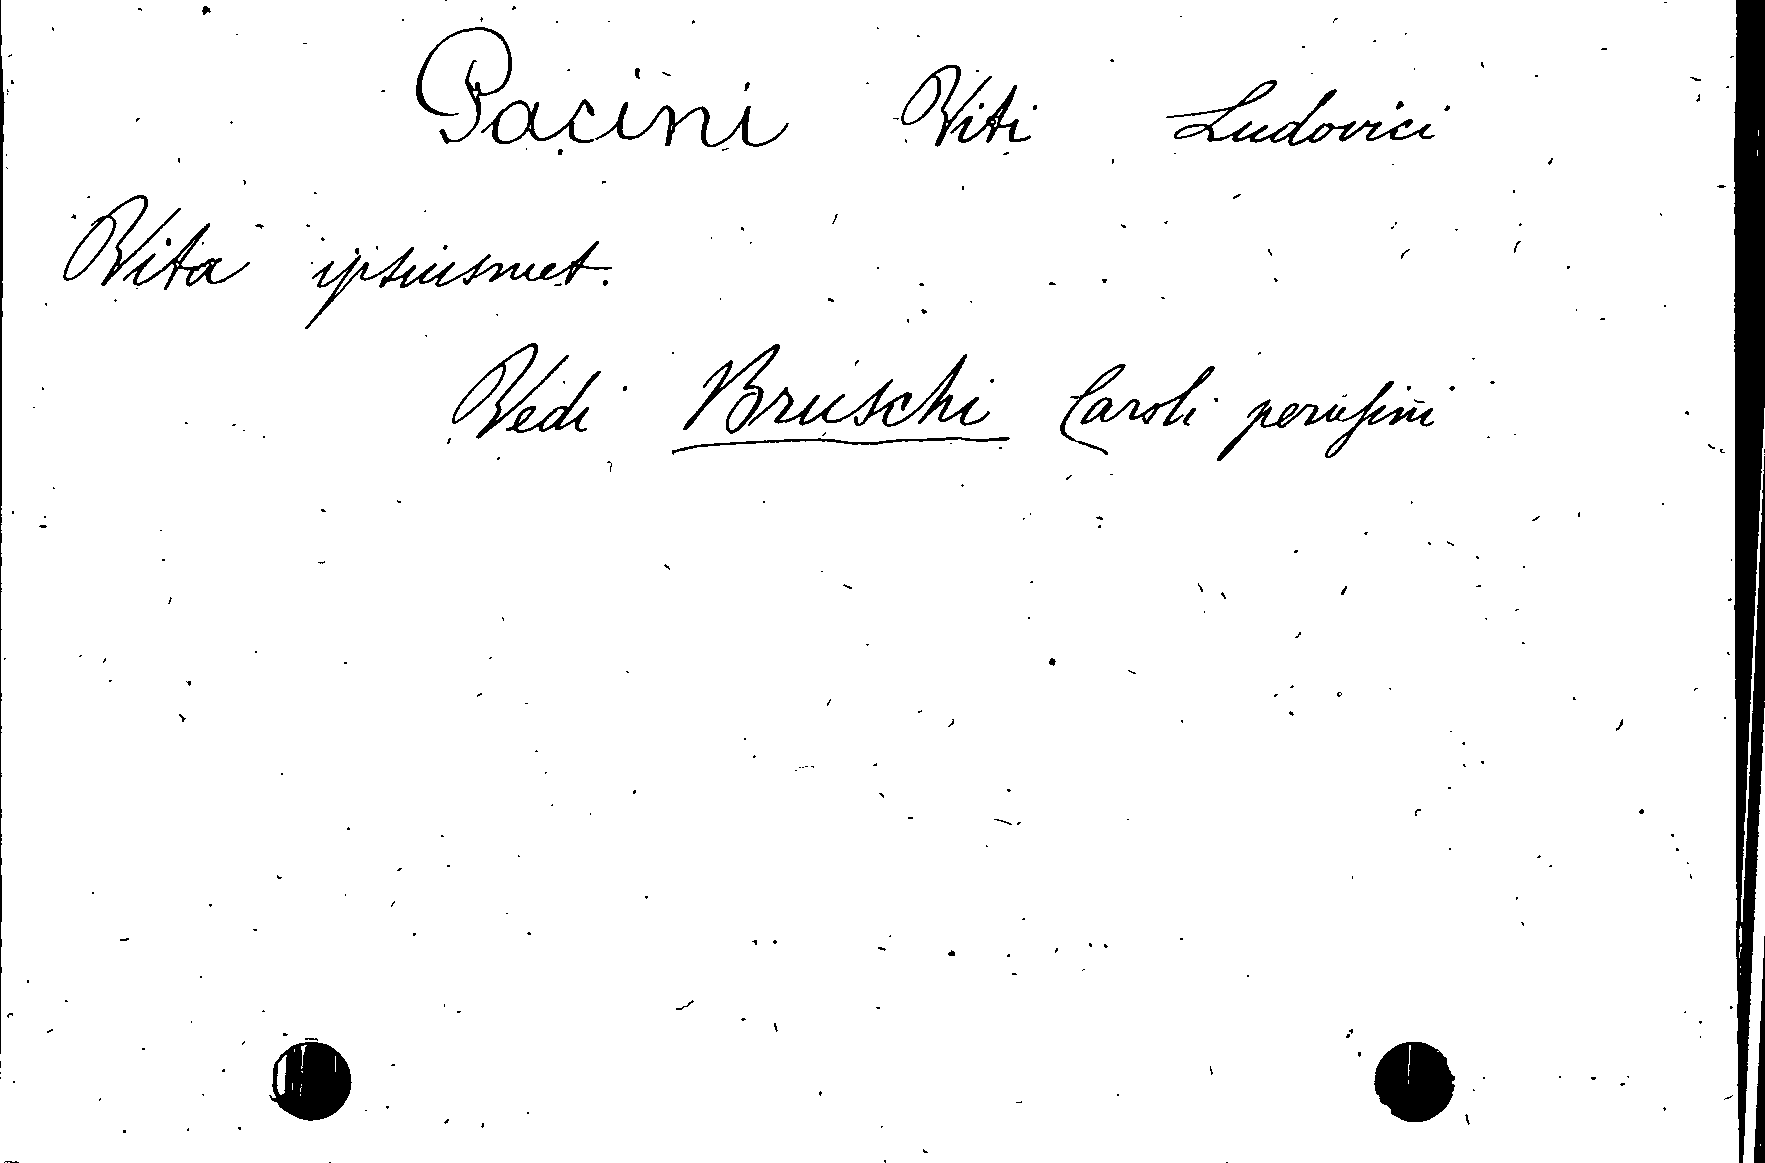 Pacini Viti Ludovici
Vita ipsiusmet.
Vedi Bruschi Caroli perusini